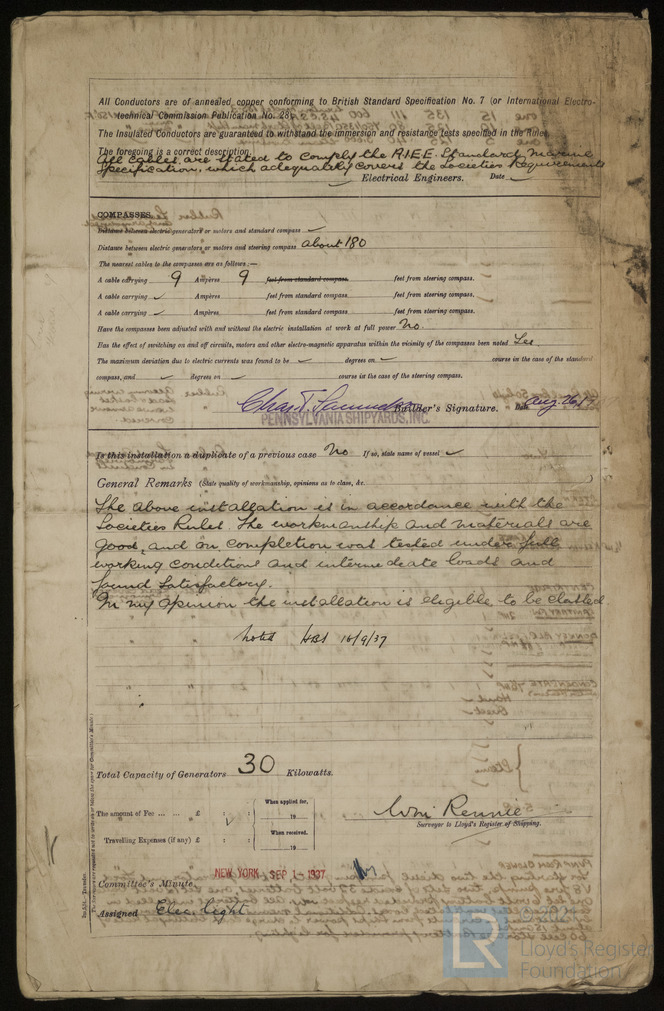 All Conductors are of annealed copper conforming to British Standard Specification No. 7 (or International Electro-
technical Commission Publication No. 28).
The Insulated Conductors are guaranteed to withstand the immersion and resistance tests specified in the Rules.
The foregoing is a correct description.
All cables are stated to comply the A.I.E.E. Standard Marine
Specification, which adequately covers the Societies Requirements
Electrical Engineers. Date
COMPASSES.
Distance between electric generators or motors and standard compass
Distance between electric generators or motors and steering compass about 180
The nearest cables to the compasses are as follows:—
A cable carrying 9 Ampères 9 feet from standard compass. feet from steering compass.
A cable carrying Ampères feet from standard compass. feet from steering compass.
A cable carrying Ampères feet from standard compass. feet from steering compass.
Have the compasses been adjusted with and without the electric installation at work at full power No.
Has the effect of switching on and off circuits, motors and other electro-magnetic apparatus within the vicinity of the compasses been noted Yes
The maximum deviation due to electric currents was found to be degrees on course in the case of the standard
compass, and degrees on course in the case of the steering compass.
Chas T. Saunders Builder's Signature. Date Aug
PENNSYLVANIA SHIPYARDS, INC.
Is this installation a duplicate of a previous case No If so, state name of vessel
General Remarks (State quality of workmanship, opinions as to class, &c.
The above installation is in accordance with the
Societies Rules. The workmanship and materials are
good, and on completion was tested under full
working conditions and intermediate loads and
found satisfactory.
In my opinion the installation is eligible to be classed
noted 16/9/37
Total Capacity of Generators 30 Kilowatts.
The amount of Fee ... ... £ : :
When applied for,
19
Travelling Expenses (if any) £ : :
When received,
19
Wm Rennie
Surveyor to Lloyd's Register of Shipping.
NEW YORK SEP 1 - 1937
Committee's Minute
Assigned Elec. Light
LR
© 2021
Lloyd's Register
Foundation